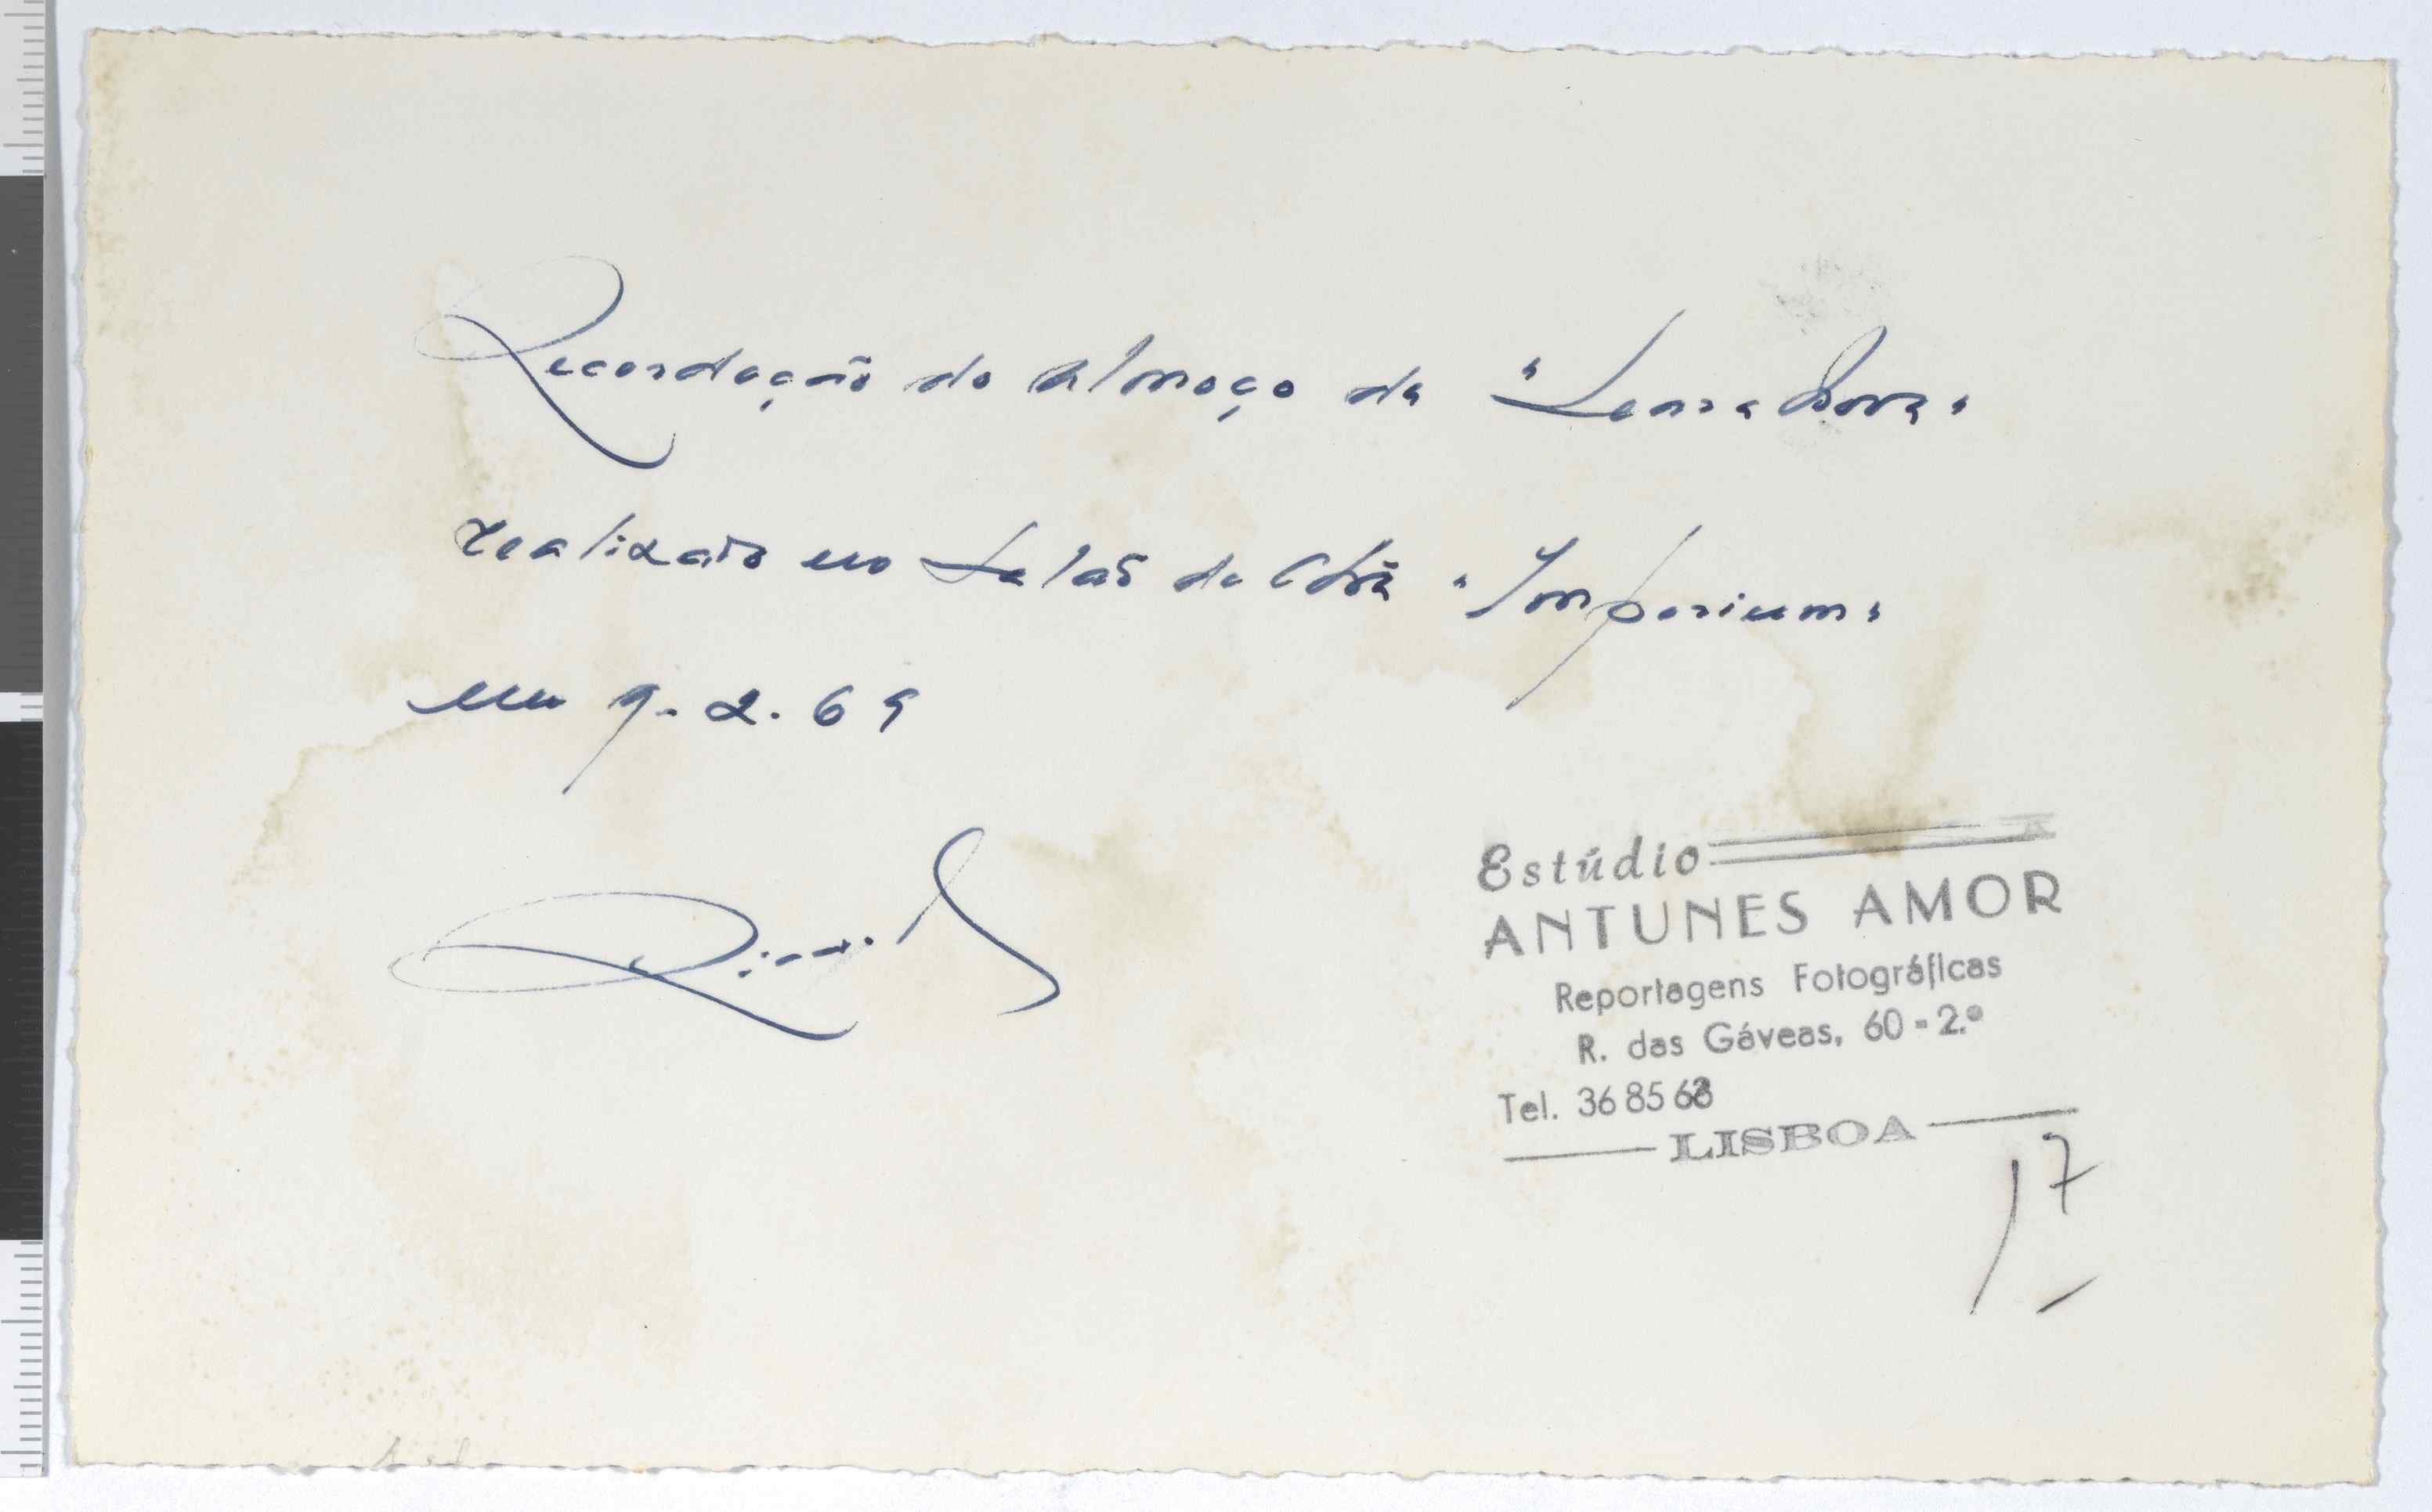 Recordação do almoço da "
realizado no Salão do "Imperium"
em 9.2.69
Estúdio
ANTUNES AMOR
Reportagens Fotográficas
R. das Gáveas, 60-2.º
Tel. 36 85
LISBOA
17